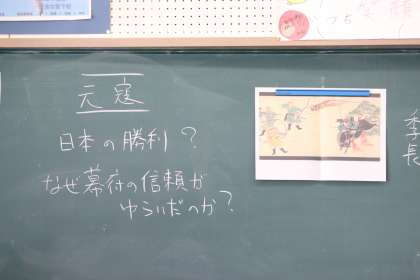 元寇
日本の勝利?
なぜ幕府の信頼が
ゆらいだのか?
長